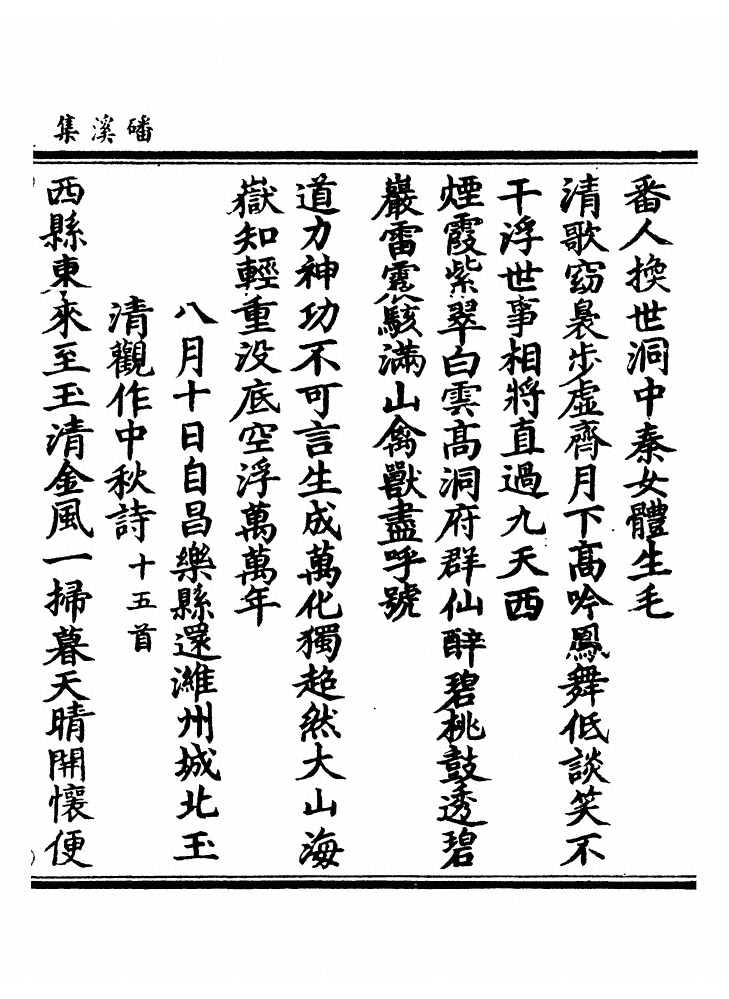 磻溪集
番人換世洞中秦女體生毛
清歌窈裊步虛齊月下高吟鳳舞低談笑不
干浮世事相將直過九天西
煙霞紫翠白雲高洞府群仙醉碧桃鼓透碧
巖雷震駭滿山禽獸盡呼號
道力神功不可言生成萬化獨超然大山海
嶽知輕重没底空浮萬萬年
八月十日自昌樂縣還濰州城北玉
清觀作中秋詩十五首
西縣東來至玉清金風一掃暮天晴開懷便